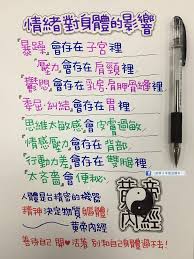 情緒對身體的影響
暴躁,會存在子宮裡
壓力會存在肩頸裡
鬱悶,會存在乳房,肩胛骨縫裡
委屈、糾結會存在胃裡
思維太敏感會皮膚過敏
情感壓力會存在背部
行動力差會存在雙腿裡
太吝嗇會便秘
人體是台精密的機器
精神決定物質軀體!
黃帝內經
善待自己 開心活著 別和自己身體過不去!
黃帝
內經